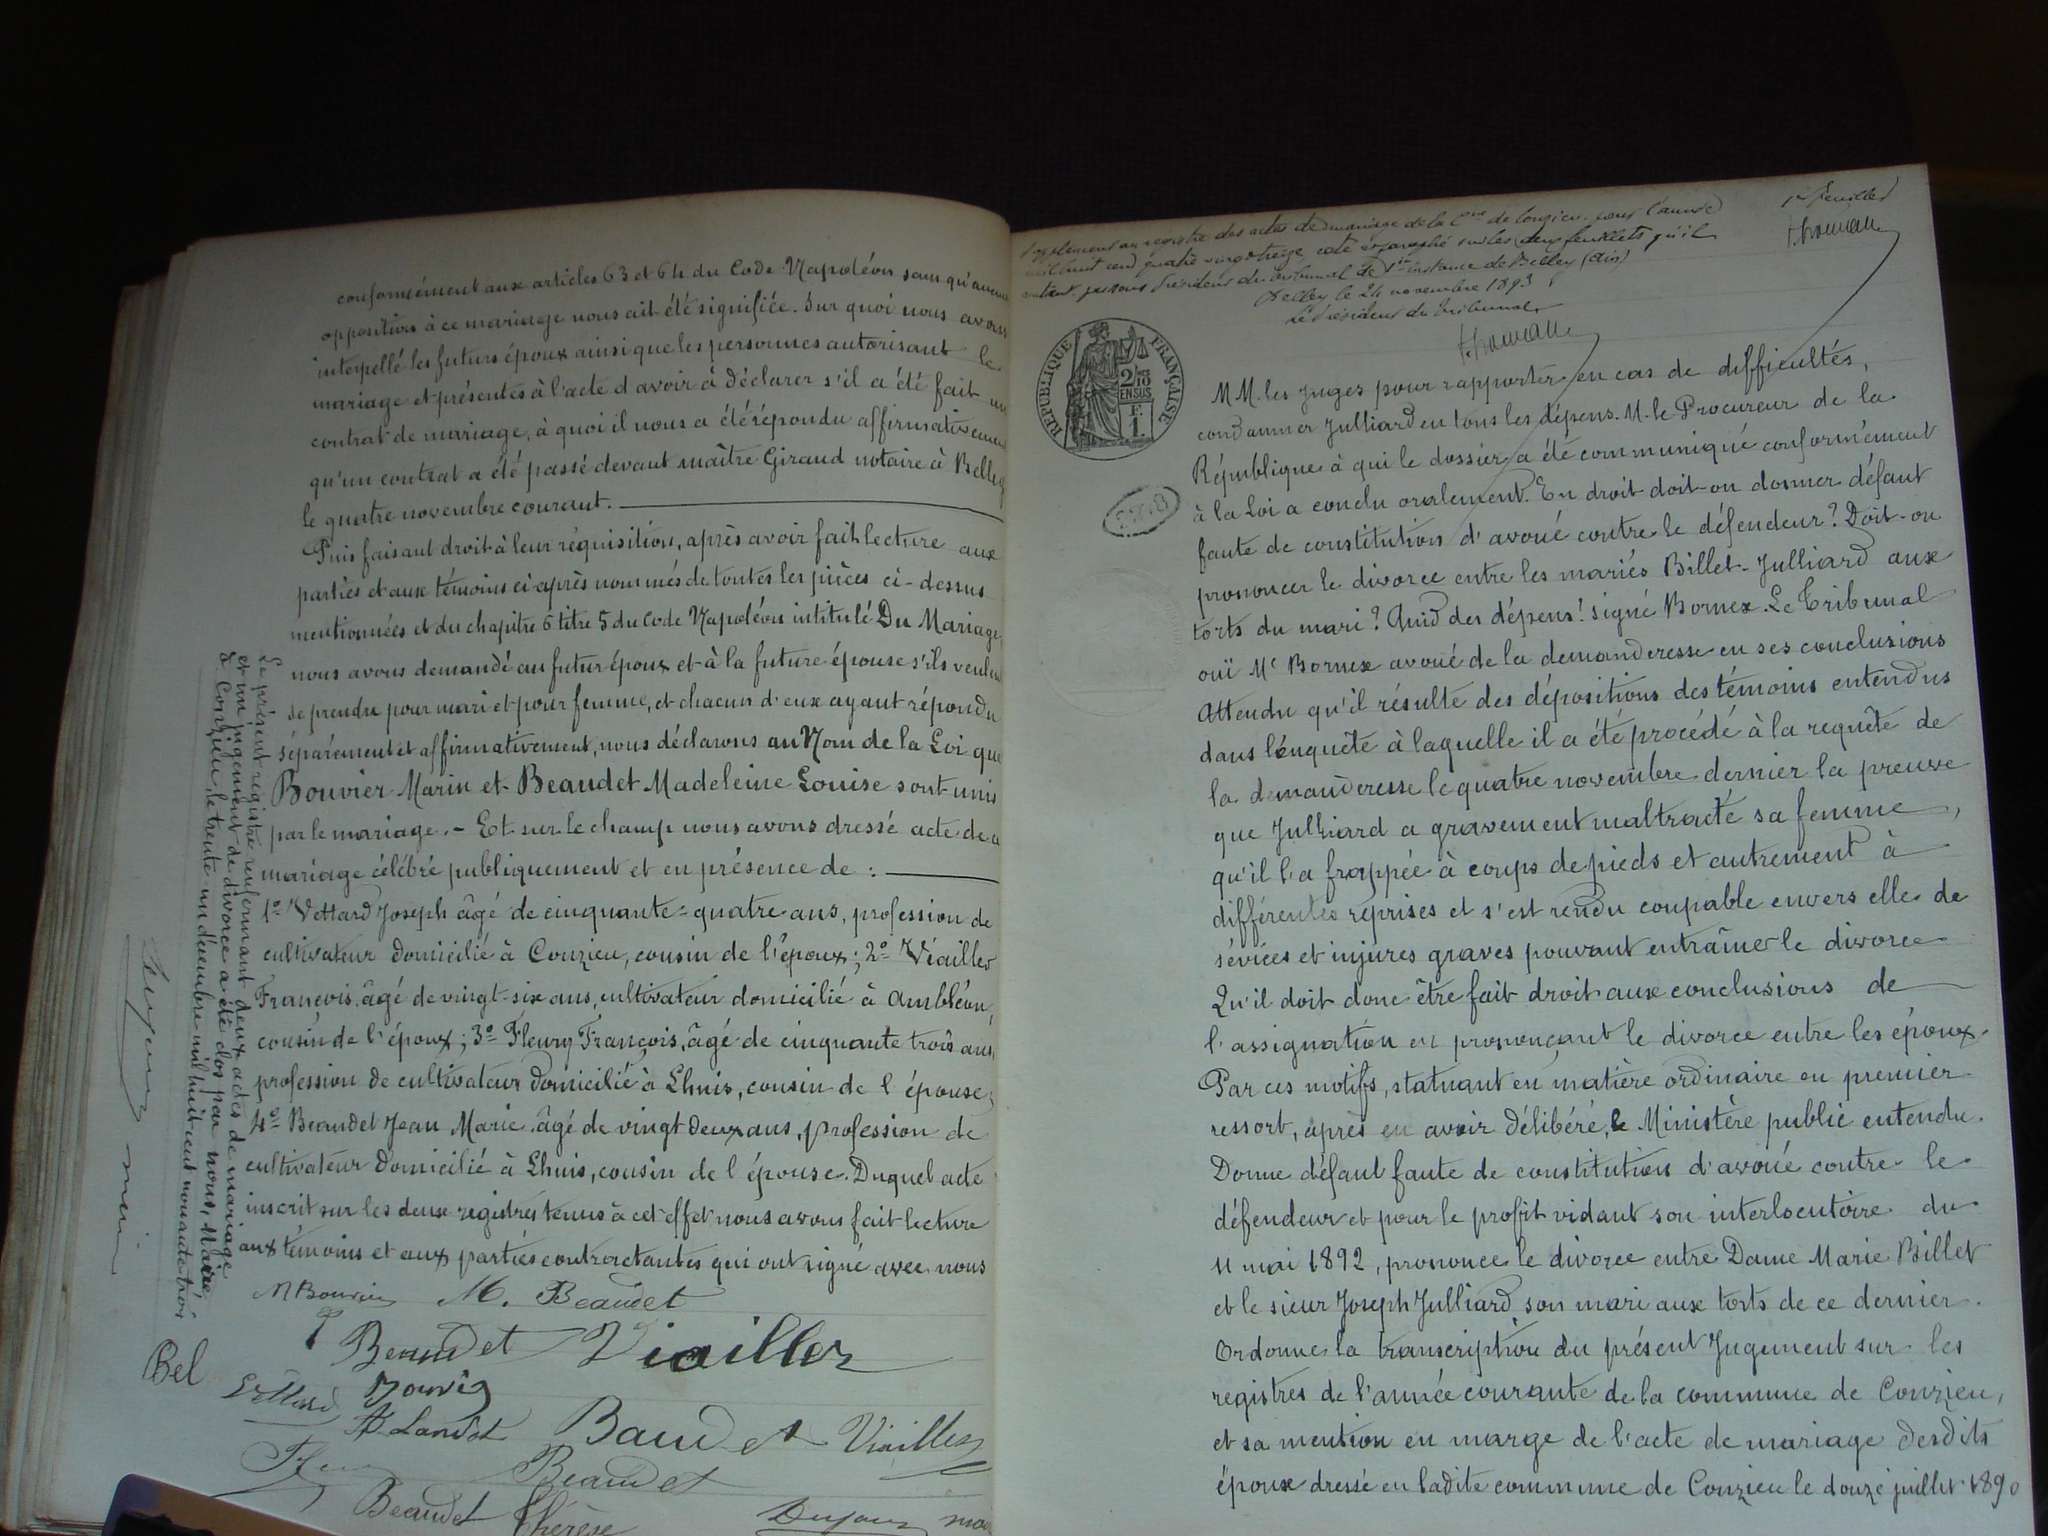 conformément aux articles 63 et 64 du Code Napoléon sans qu'aucune
opposition à ce mariage nous ait été signifiée. Sur quoi nous avons
interpellé les futurs époux ainsi que les personnes autorisant le
mariage et présentes à l'acte d'avoir à déclarer s'il a été fait un
contrat de mariage, à quoi il nous a été répondu affirmativement
qu'un contrat a été passé devant maître Giraud notaire à Belley
le quatre novembre courant.
Puis faisant droit à leur réquisition, après avoir fait lecture aux
parties et aux témoins ci-après nommés de toutes les pièces ci-dessus
mentionnées et du chapitre 6 titre 5 du Code Napoléon intitulé Du Mariage
nous avons demandé au futur époux et à la future épouse s'ils veulent
se prendre pour mari et pour femme, et chacun d'eux ayant répondu
séparément et affirmativement, nous déclarons au Nom de la Loi que
Bouvier Marin et Beaudet Madeleine Louise sont unis
par le mariage. - Et sur le champ nous avons dressé acte de ce
mariage célébré publiquement et en présence de :
1º Vettard Joseph âgé de cinquante-quatre ans, profession de
cultivateur domicilié à Conzieu, cousin de l'époux; 2º Viailler
François, âgé de vingt-six ans, cultivateur domicilié à Ambléon,
cousin de l'époux; 3º Fleury François, âgé de cinquante trois ans,
profession de cultivateur domicilié à Lhuis, cousin de l'épouse;
4º Beaudet Jean Marie, âgé de vingt deux ans, profession de
cultivateur domicilié à Lhuis, cousin de l'épouse. Duquel acte
inscrit sur les deux registres tenus à cet effet nous avons fait lecture
aux témoins et aux parties contractantes qui ont signé avec nous
M Bouvier M. Beaudet
Beaudet Viailler
Bouvier
Baudet Viailler
Beaudet
Beaudet Thérèse
Le présent registre renfermant deux actes de mariage
et un jugement de divorce a été clos par nous, Maire,
à Conzieu, le trente un décembre mil huit cent nonante-trois
Bel
1er feuillet
Supplément au registre des actes de mariage de la Cne de Conzieu pour l'année
mil huit cent quatre vingt treize, coté et paraphé sur les deux feuillets qu'il
contient par nous Président du tribunal de 1re instance de Belley (Ain)
Belley le 24 novembre 1893
Le Président du Tribunal
RÉPUBLIQUE FRANÇAISE
2/10 EN SUS
F. 1.
MM. les Juges pour rapporter en cas de difficultés,
condamner Julliard en tous les dépens. M. le Procureur de la
République à qui le dossier a été communiqué conformément
à la Loi a conclu oralement. En droit doit-on donner défaut
faute de constitution d'avoué contre le défendeur? Doit-on
prononcer le divorce entre les mariés Billet-Julliard aux
torts du mari? Quid des dépens? signé Bornex. Le Tribunal
ouï Me Bornex avoué de la demanderesse en ses conclusions
Attendu qu'il résulte des dépositions des témoins entendus
dans l'enquête à laquelle il a été procédé à la requête de
la demanderesse le quatre novembre dernier la preuve
que Julliard a gravement maltracté sa femme,
qu'il l'a frappée à coups de pieds et autrement à
différentes reprises et s'est rendu coupable envers elle de
sévices et injures graves pouvant entraîner le divorce
Qu'il doit donc être fait droit aux conclusions de
l'assignation en prononçant le divorce entre les époux.
Par ces motifs, statuant en matière ordinaire en premier
ressort, après en avoir délibéré, le Ministère public entendu.
Donne défaut faute de constitution d'avoué contre le
défendeur et pour le profit vidant son interlocutoire du
11 mai 1892, prononce le divorce entre Dame Marie Billet
et le sieur Joseph Julliard son mari aux torts de ce dernier.
Ordonne la transcription du présent Jugement sur les
registres de l'année courante de la commune de Conzieu,
et sa mention en marge de l'acte de mariage desdits
époux dressé en ladite commune de Conzieu le douze juillet 1890